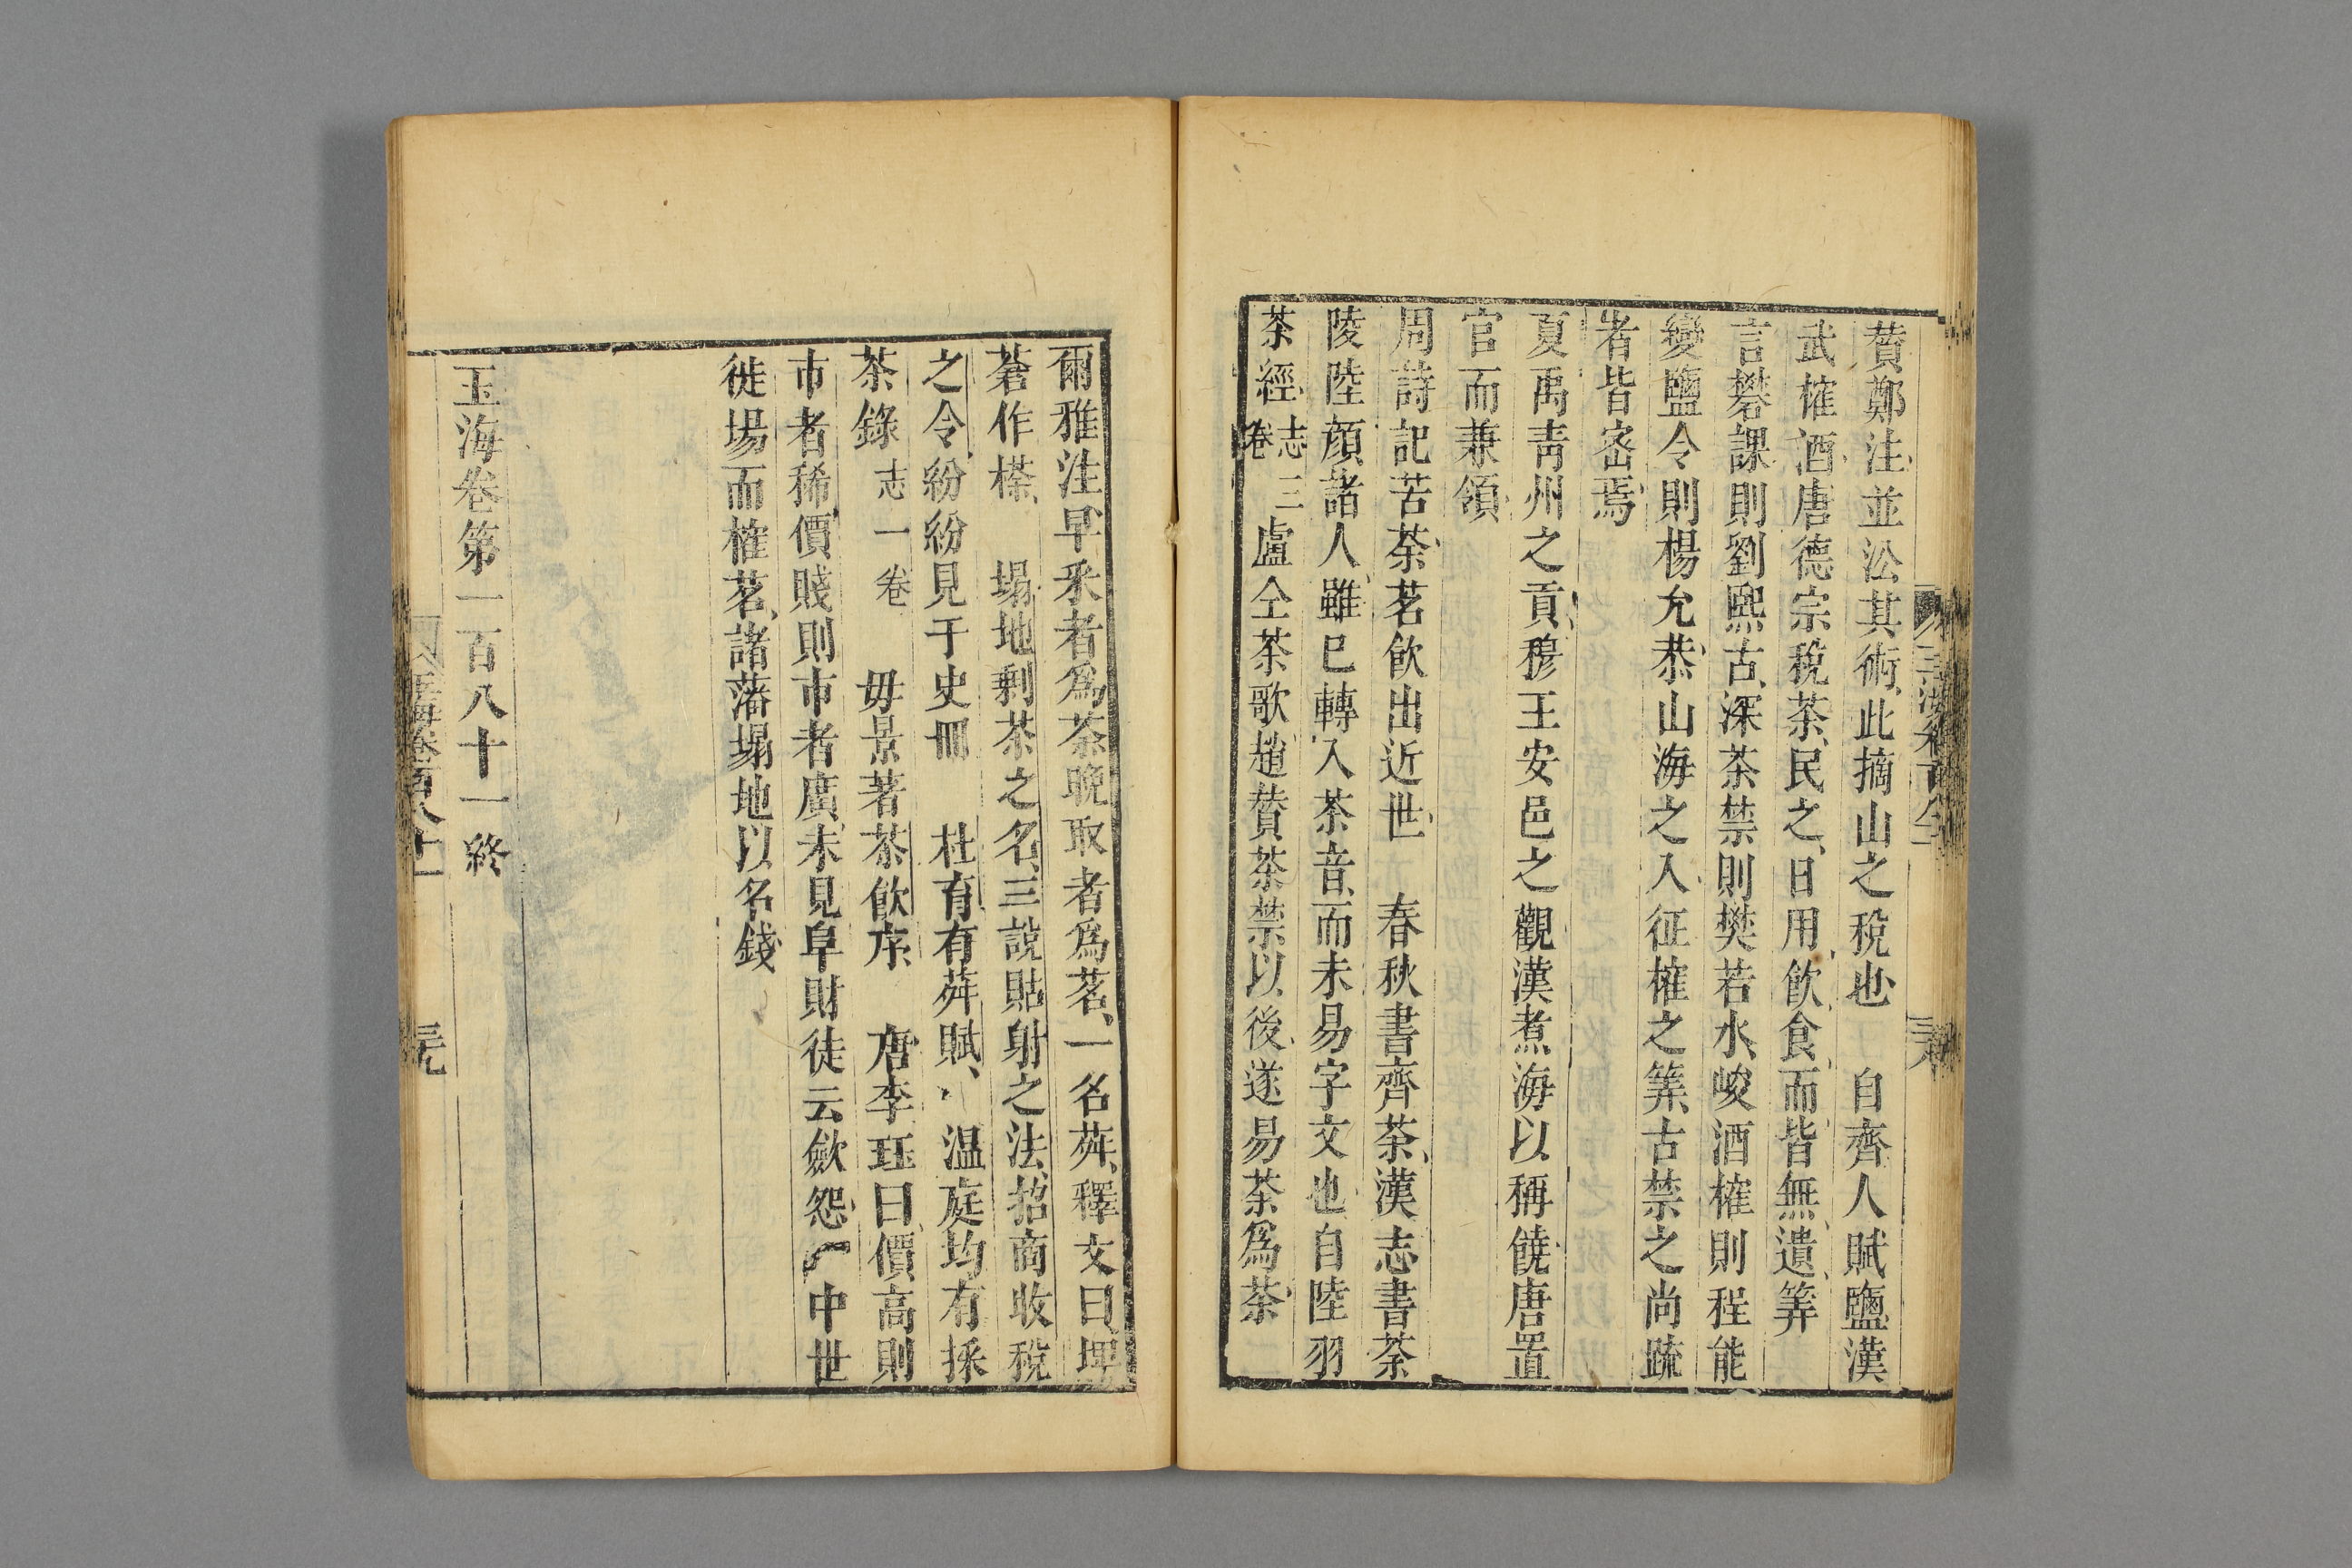 贊鄭注並沿其術此摘山之稅也 自齊人賦鹽漢
武榷酒唐德宗稅茶民之日用飲食而皆無遺筭
言礬課則劉熙古深茶禁則樊若水峻酒榷則程能
變鹽令則楊允恭山海之入征榷之筭古禁之尚疏
者皆密焉
夏禹青州之貢穆王安邑之觀漢煮海以稱饒唐置
官而兼領
周詩記苦荼茗飲出近世 春秋書齊荼漢志書荼
陵陸顔諸人雖已轉入茶音而未易字文也自陸羽
茶經志三卷盧仝茶歌趙贊茶禁以後遂易荼為茶
爾雅注早采者為茶晩取者為茗一名荈釋文曰埤
蒼作㯆 塌地剩茶之名三說貼射之法招商收稅
之令紛紛見于史冊 杜育有荈賦 温庭均有採
茶錄志一卷 毋景著茶飲序 唐李珏曰價高則
市者稀價賤則市者廣未見阜財徒云歛怨 中世
徙場而榷茗諸藩塌地以名錢
玉海卷第一百八十一終
玉海卷百八十一